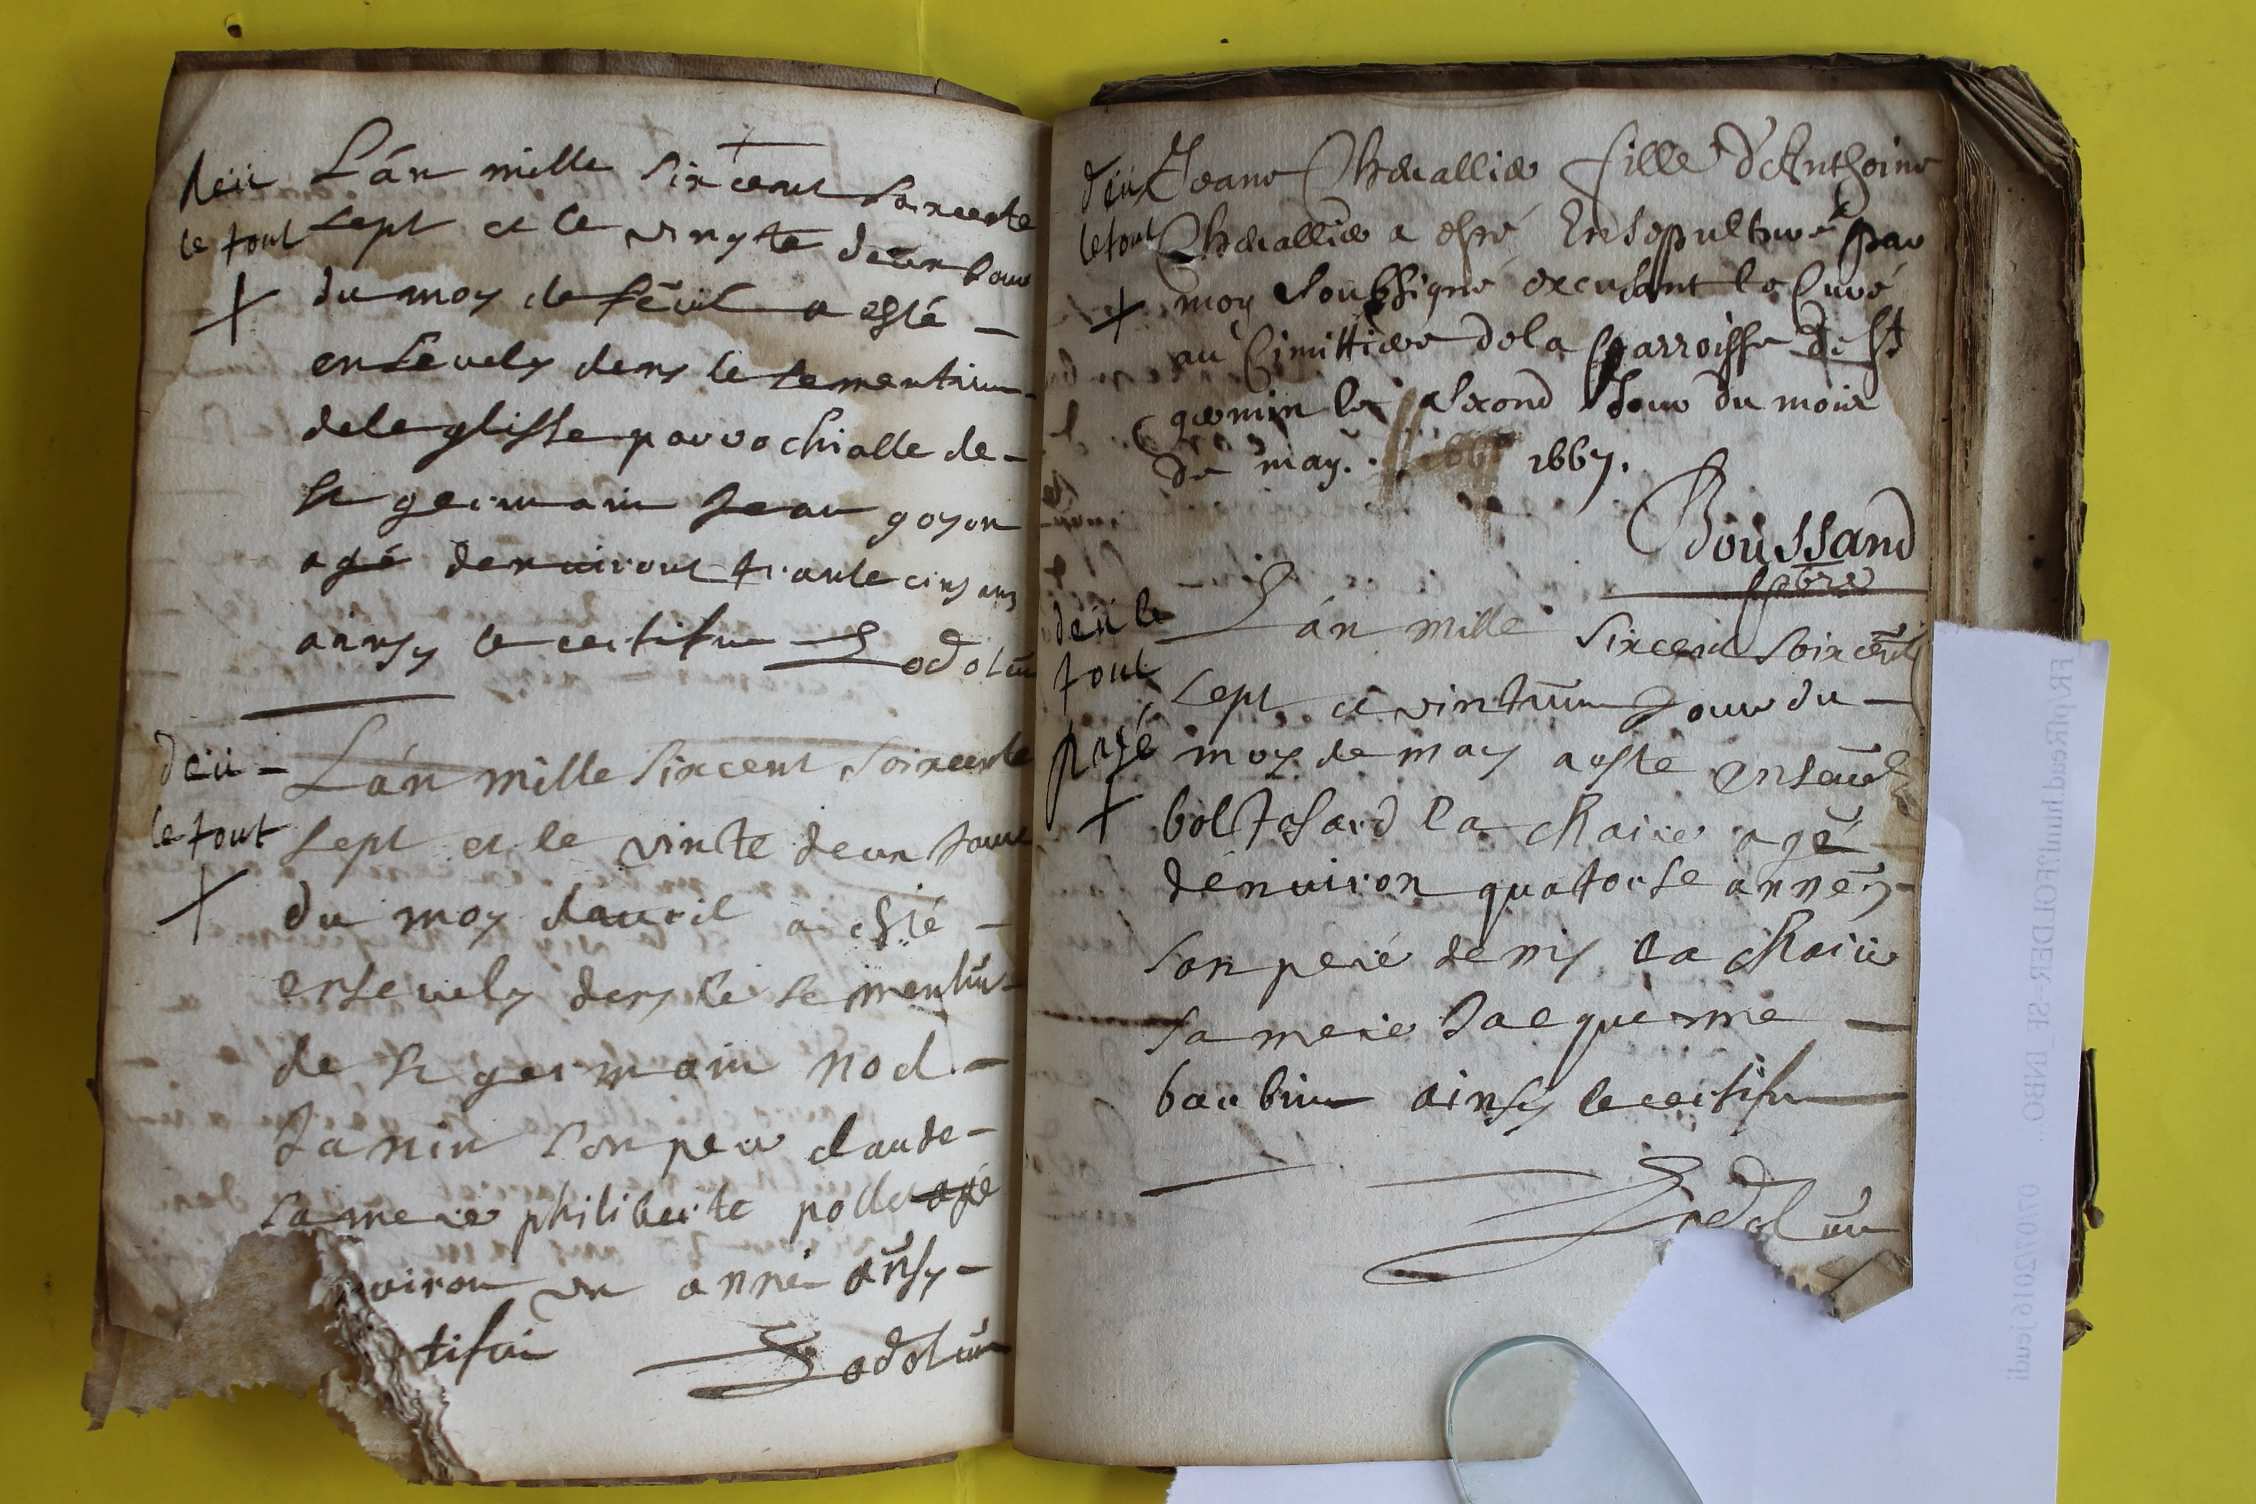 deü
le tout
L'án mille sixcent soixcente
sept et le vingte deux Jour
du moy de a esté
ensevely dens le sementiere
de leglisse parrochialle de
St germain Jean goyon
agé denviront trante cinq ans
ainsy le certifie
deü
le tout
L'án mille sixcent soixcente
sept et le vinte deux Jour
du moy davril a esté
ensevely dens le sementier
de St germain noel
Janin son pere claude
sa mere philiberte agé
viron un anné ainsy
tifie
deü
le tout
Jeane Chevallier fille d'Anthoine
Chevallier a esté Ensepulturé par
moy soubsigné excusant le Curé
au Cimittiere de la parroisse de St
germin le second Jour du mois
de may. 1667.
Boussand
pbre
deü le
tout
payé
L'án mille sixcent soixcente
sept et vintun Jour du
moy de may a esté ensevel
baltasard la chaire agé
denviron quatorse annéez
son pere denis la chaire
sa mere Jacquemme
barbier ainsy le certifie